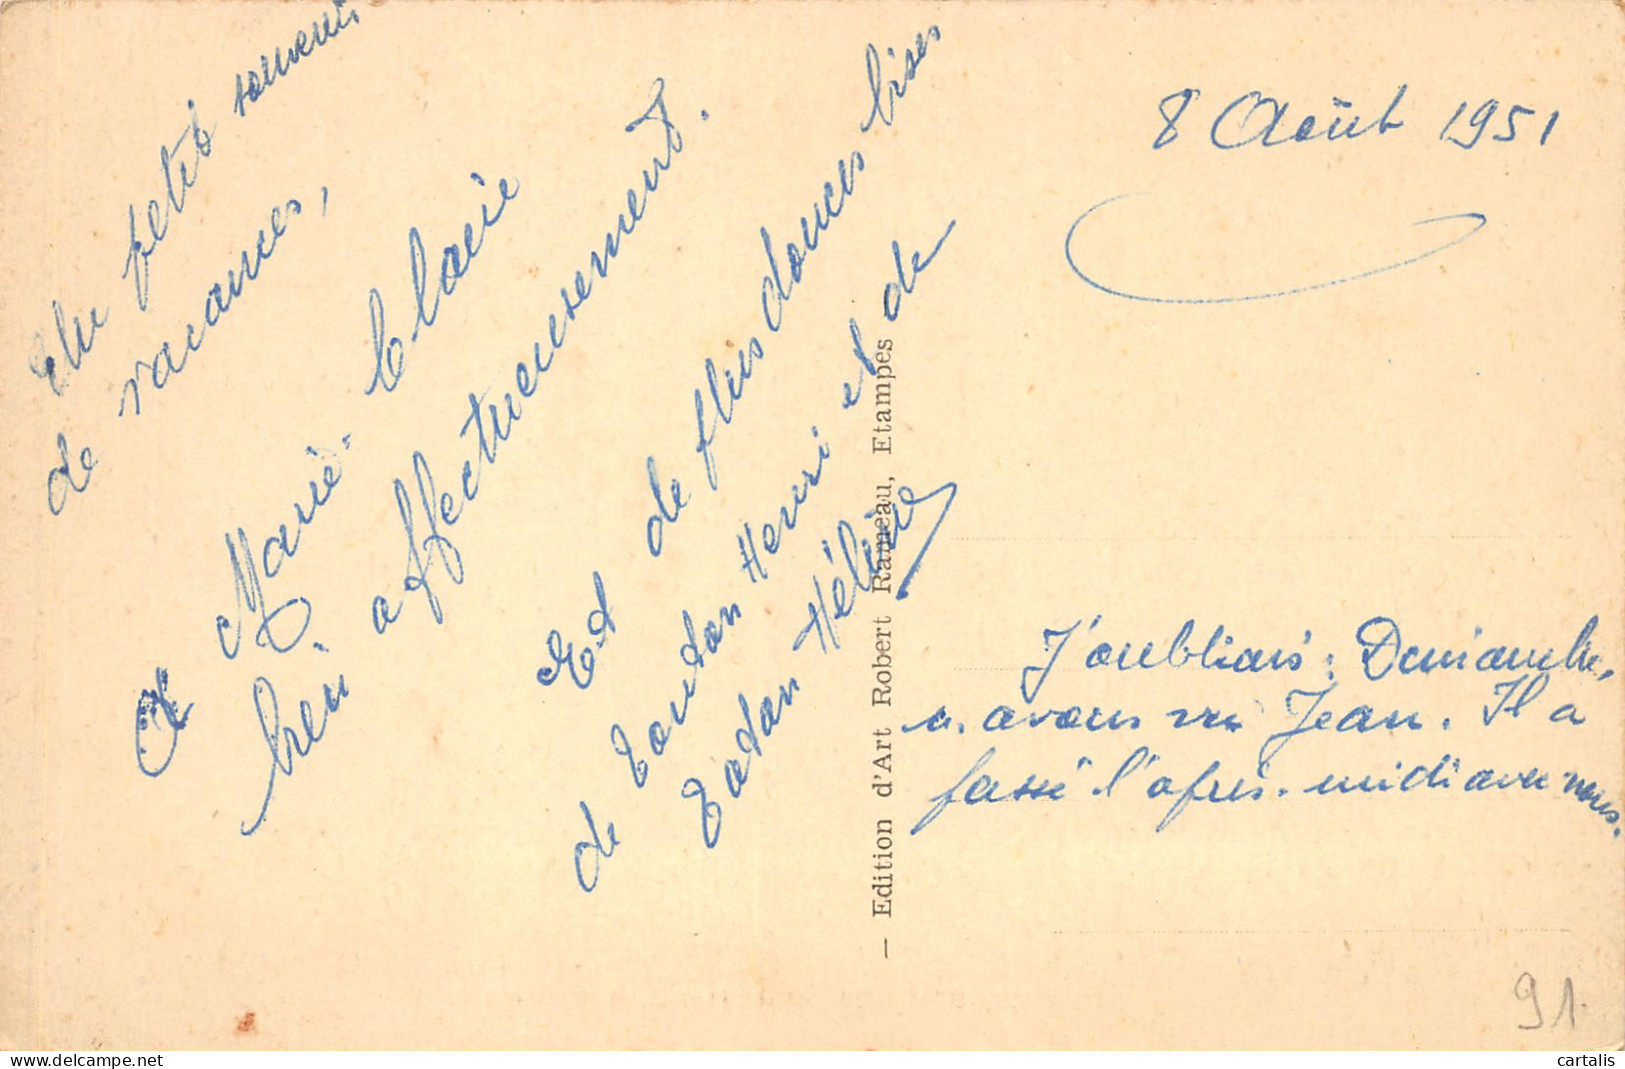 8 Août 1951
Un petit souvenir
de vacances,
A Marie-Claire
bien affectueusement.
Et de plus douces bises
de Tonton Henri et de
Tatan Hélène
J'oubliais : Dimanche,
n. avons vu Jean. Il a
passé l'après-midi avec nous.
— Edition d'Art Robert Rameau, Etampes
91
cartalis
www.delcampe.net